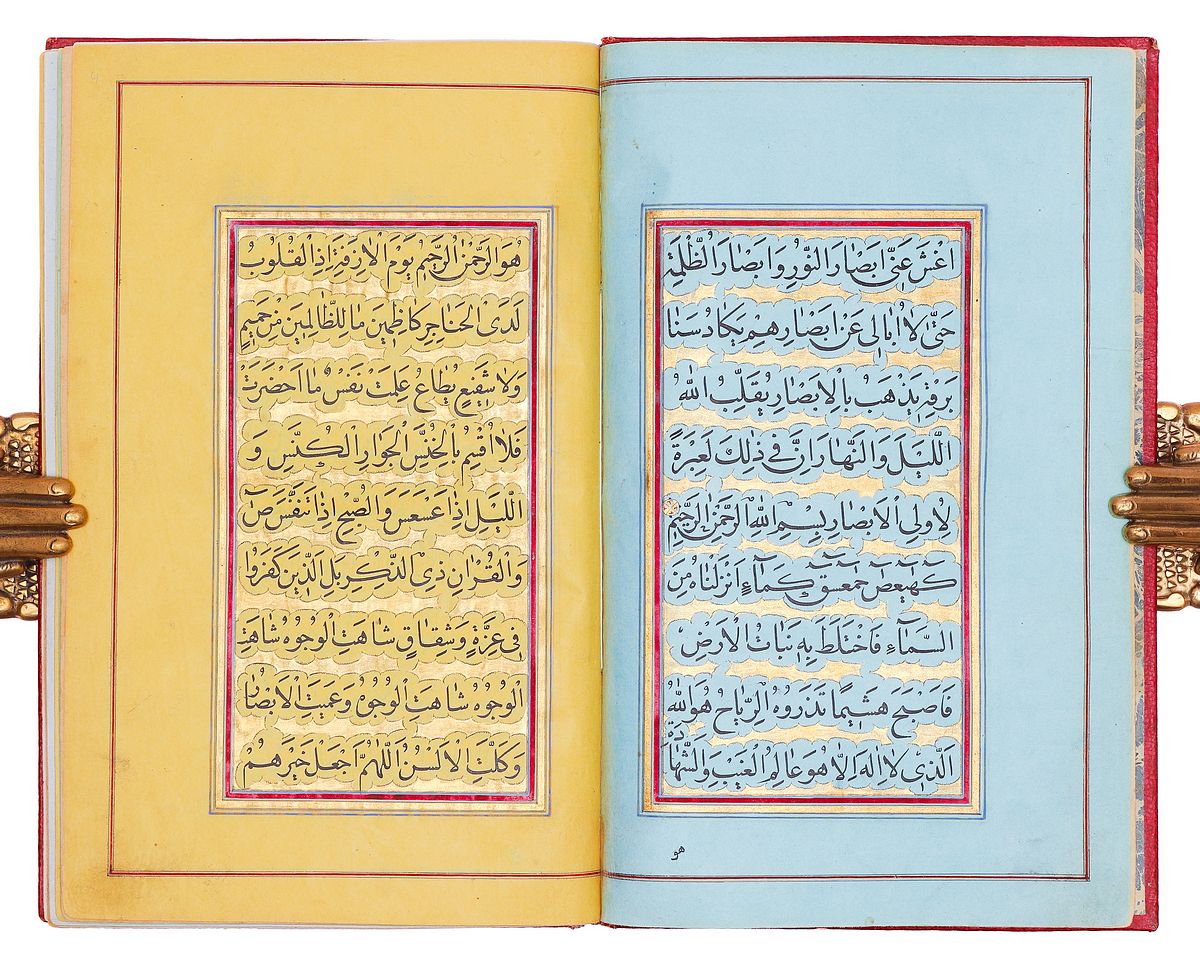 اَغْشِ عَنّى اَبْصَارَ النُّورِ وَاَبْصَارَ الظُّلْمَةِ
حَتّٰى لَا اُبَالِى عَنْ اَبْصَارِهِمْ يَكَادُ سَنَا
بَرْقِهِ يَذْهَبُ بِالْاَبْصَارِ يُقَلِّبُ اللّٰهُ
الَّليْلَ وَالنَّهَارَ اِنَّ فِى ذٰلِكَ لَعِبْرَةً
لِاُولِى الْاَبْصَارِ بِسْمِ اللّٰهِ الرَّحْمٰنِ الرَّحِيْمِ
كٓهٰيٰعٓصٓ حٰمٓعٓسٓقٓ كَمَاۤءٍ اَنْزَلْنَاهُ مِنَ
السَّمَاۤءِ فَاخْتَلَطَ بِهِ نَبَاتُ الْاَرْضِ
فَاَصْبَحَ هَشِيْمًا تَذْرُوهُ الرِّيَاحُ هُوَ اللّٰهُ
الَّذِى لَا اِلٰهَ اِلَّا هُوَ عَالِمُ الْغَيْبِ وَالشَّهَادَةِ
هو
هُوَ الرَّحْمٰنُ الرَّحِيْمُ يَوْمَ الْاٰزِفَةِ اِذِ الْقُلُوبُ
لَدَى الْحَنَاجِرِ كَاظِمِيْنَ مَا لِلظَّالِمِيْنَ مِنْ حَمِيْمٍ
وَلَا شَفِيْعٍ يُطَاعُ عَلِمَتْ نَفْسٌ مَا اَحْضَرَتْ
فَلَا اُقْسِمُ بِالْخُنَّسِ الْجَوَارِ الْكُنَّسِ وَ
الَّليْلِ اِذَا عَسْعَسَ وَالصُّبْحِ اِذَا تَنَفَّسَ صٓ
وَالْقُرْاٰنِ ذِى الذِّكْرِ بَلِ الَّذِيْنَ كَفَرُوا
فِى عِزَّةٍ وَشِقَاقٍ شَاهَتِ الْوُجُوهُ شَاهَتِ
الْوُجُوهُ شَاهَتِ الْوُجُوهُ وَعَمِيَتِ الْاَبْصَارُ
وَكَلَّتِ الْاَلْسُنُ اَللّٰهُمَّ اجْعَلْ خَيْرَهُمْ